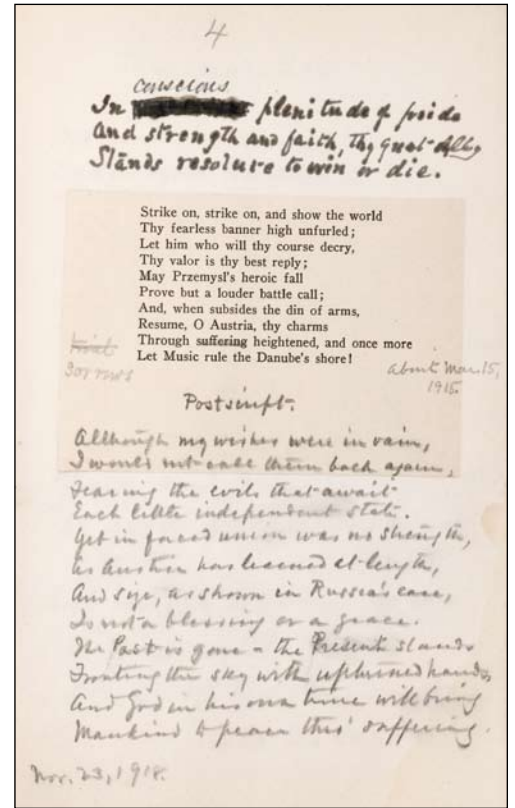 4
conscious
In plenitude of pride
And strength and faith, thy great Ally
Stands resolute to win or die.
Strike on, strike on, and show the world
Thy fearless banner high unfurled;
Let him who will thy course decry,
Thy valor is thy best reply;
May Przemysl's heroic fall
Prove but a louder battle call;
And, when subsides the din of arms,
Resume, O Austria, thy charms
Through suffering heightened, and once more
Let Music rule the Danube's shore!
sorrows
About Mar. 15,
1915.
Postscript.
Although my wishes were in vain,
I would not call them back again,
Fearing the evils that await
Each little independent state.
Yet in forced union was no strength,
As Austria has learned at length,
And size, as shown in Russia's case,
Is not a blessing or a grace.
The Past is gone – the Present stands
Fronting the sky with upturned hands,
And God in his own time will bring
Mankind to peace thro' suffering.
Nov. 23, 1918.